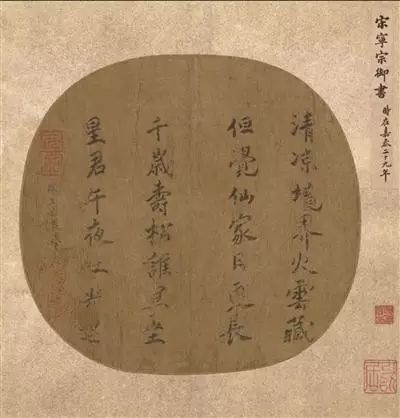 宋寧宗御書 時在嘉泰二十九年
清凉境界火雲藏
但覺仙家日更長
千歲壽松誰坐
星君午夜吐光芒